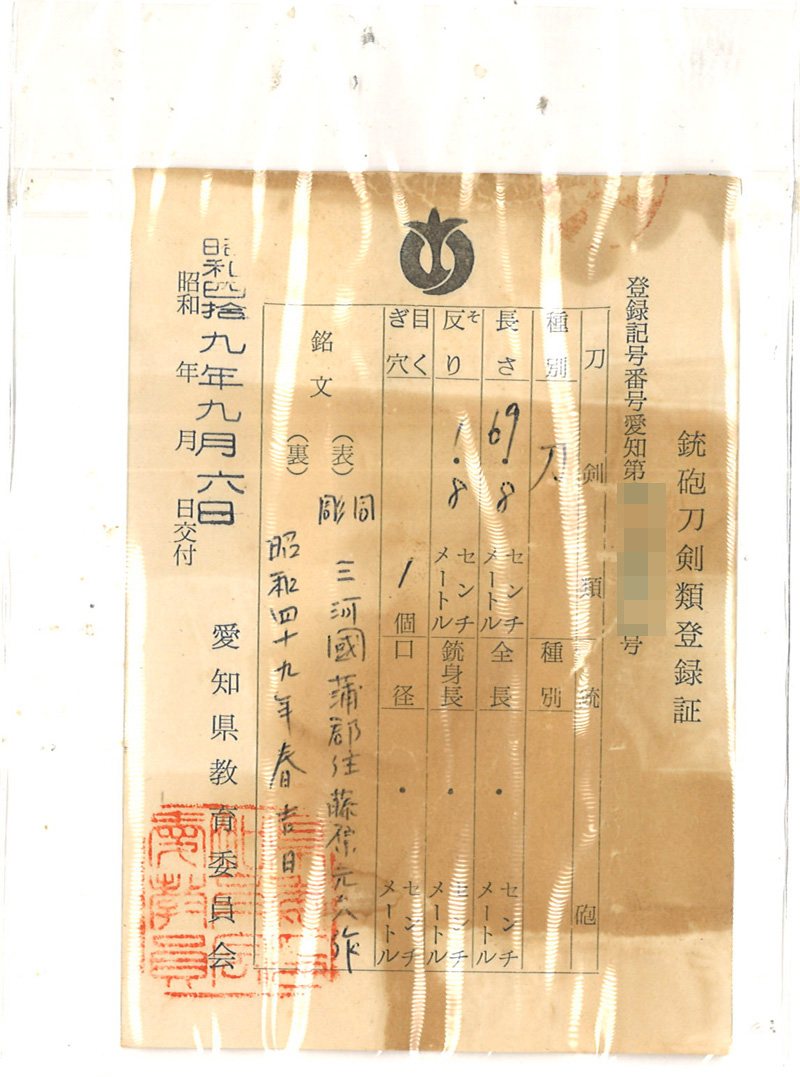 銃砲刀剣類登録証
登録記号番号愛知第 号
刀剣類
銃砲
種別 刀
種別
長さ 69.8 センチメートル
全長 . センチメートル
反り そ 1.8 センチメートル
銃身長 . センチメートル
目くぎ穴 1 個
口径 . センチメートル
銘文
(表) 同彫 三河國蒲郡住藤原元久作
(裏) 昭和四十九年春吉日
昭和四拾九年九月六日
昭和 年 月 日交付
愛知県教育委員会